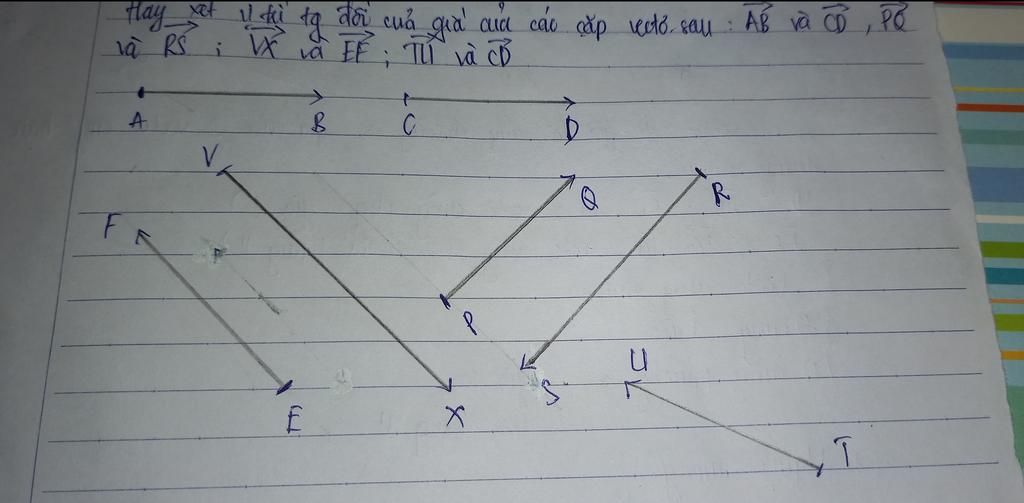 Hãy xét vị trí tg đối của giá của các cặp vectơ sau: AB và CD, PQ
và RS; VX và EF; TU và CD
A B C D
V Q R
F
P
U
E X S T